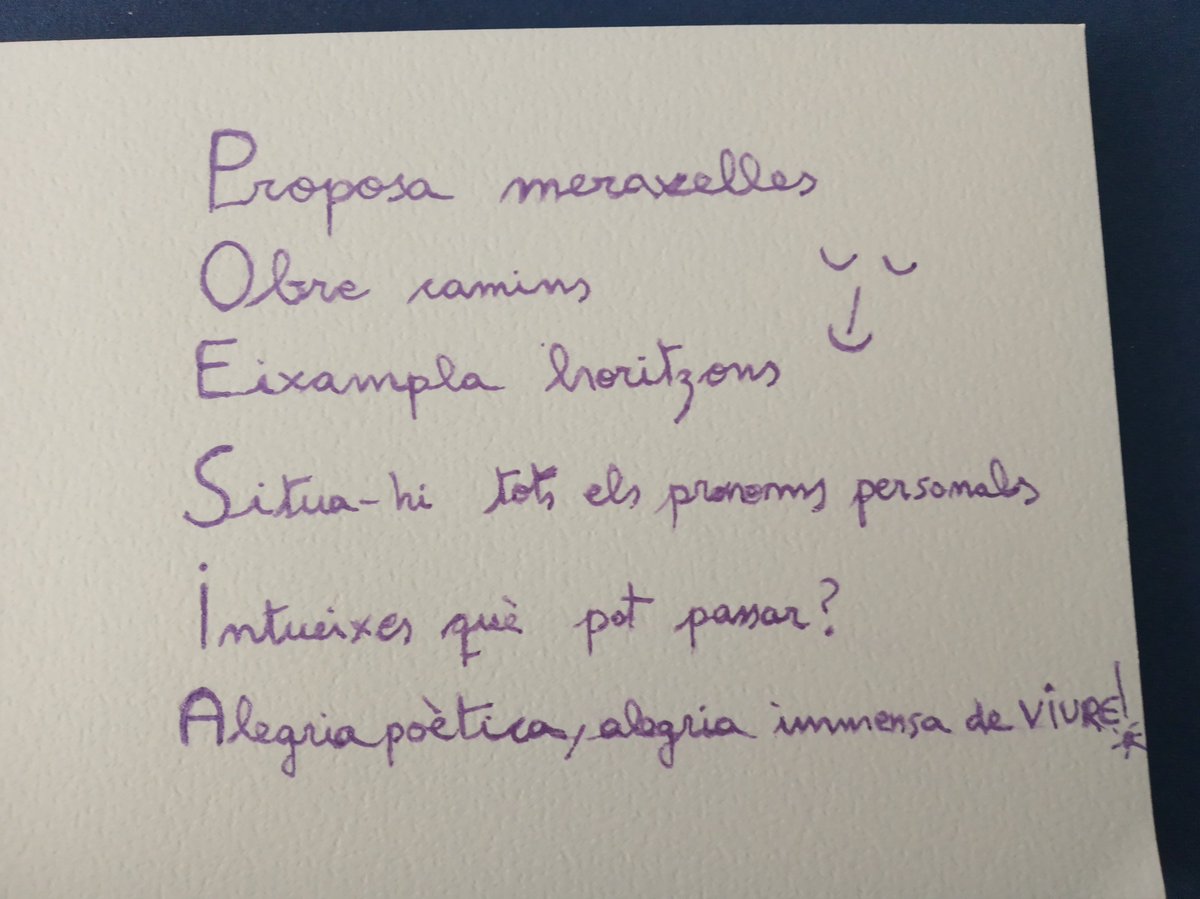 Proposa meravelles
Obre camins
Eixampla horitzons
Situa-hi tots els pronoms personals
Intueixes què pot passar?
Alegria poètica, alegria immensa de VIURE!